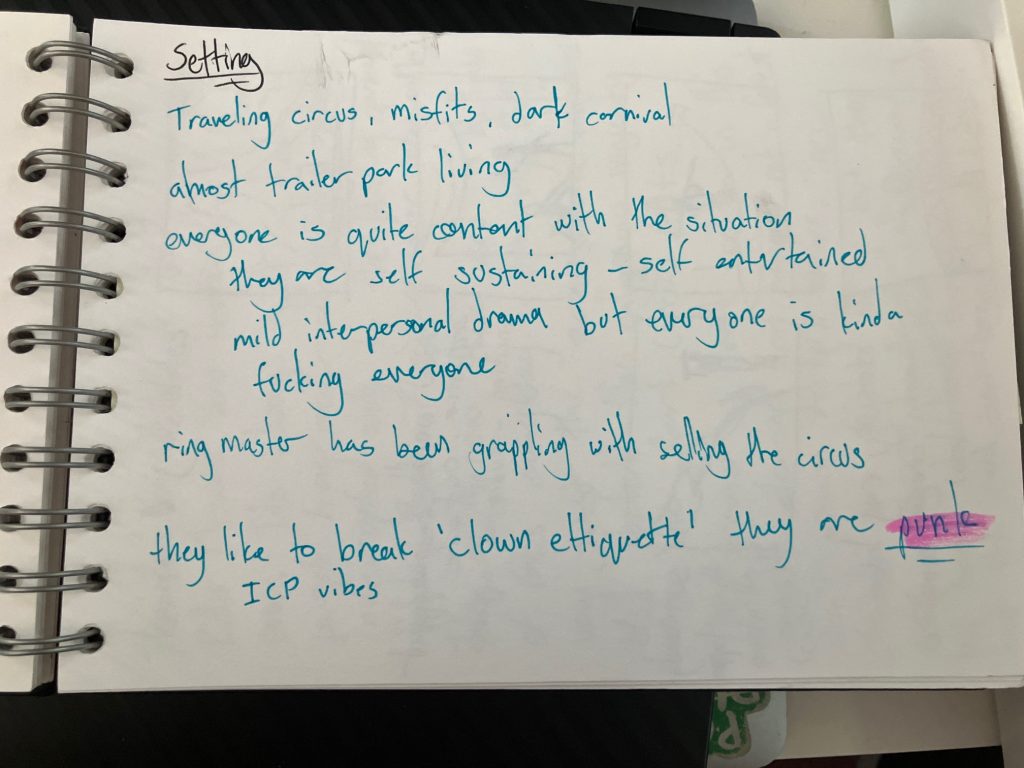 Setting
Traveling circus, misfits, dark carnival
almost trailer park living
everyone is quite content with the situation
they are self sustaining – self entertained
mild interpersonal drama but everyone is kinda
fucking everyone
ring master has been grappling with selling the circus
they like to break 'clown ettiquette' they are punk
ICP vibes